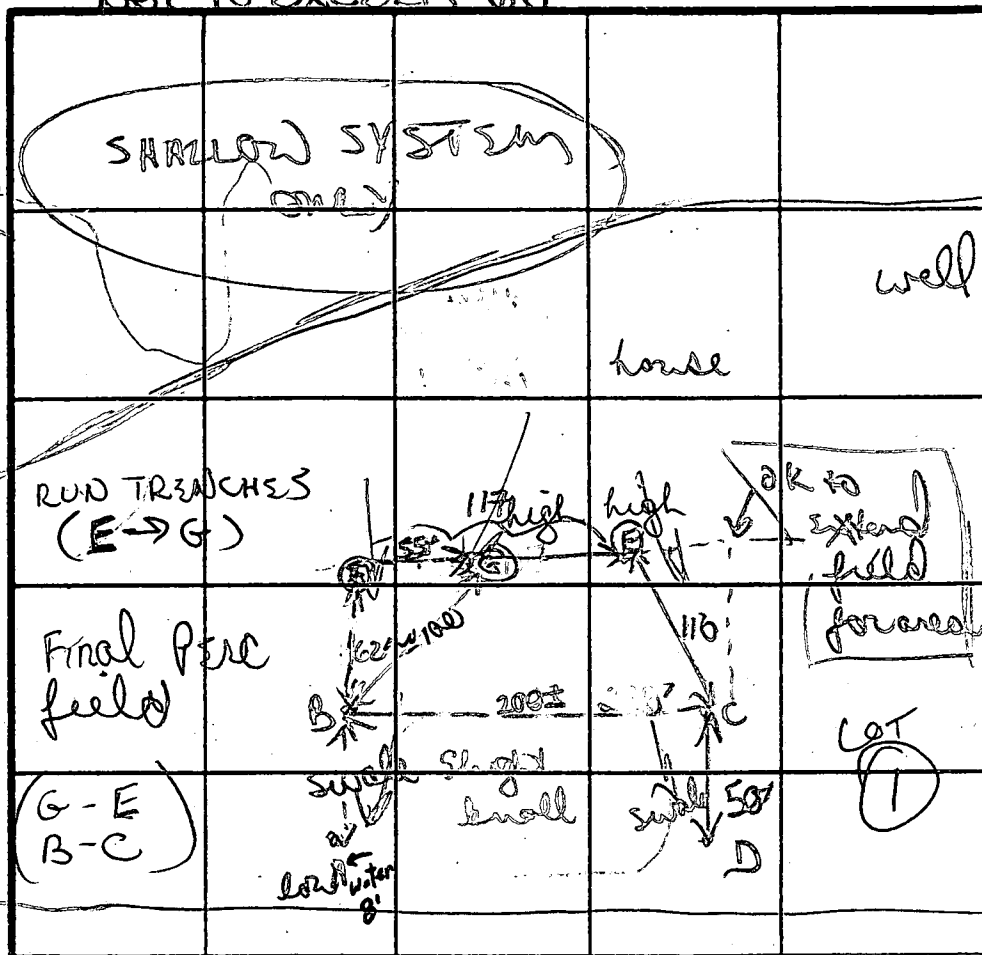 SHALLOW SYSTEM
ONLY
well
house
RUN TRENCHES
(E → G)
117
high
high
OK to
extend
field
for area
55±
G
E
Final Perc
field
62
100
116
B
200±
C
LOT
1
swale
Slight
knoll
swale
50±
D
(G - E
B - C)
low
A
water
8'